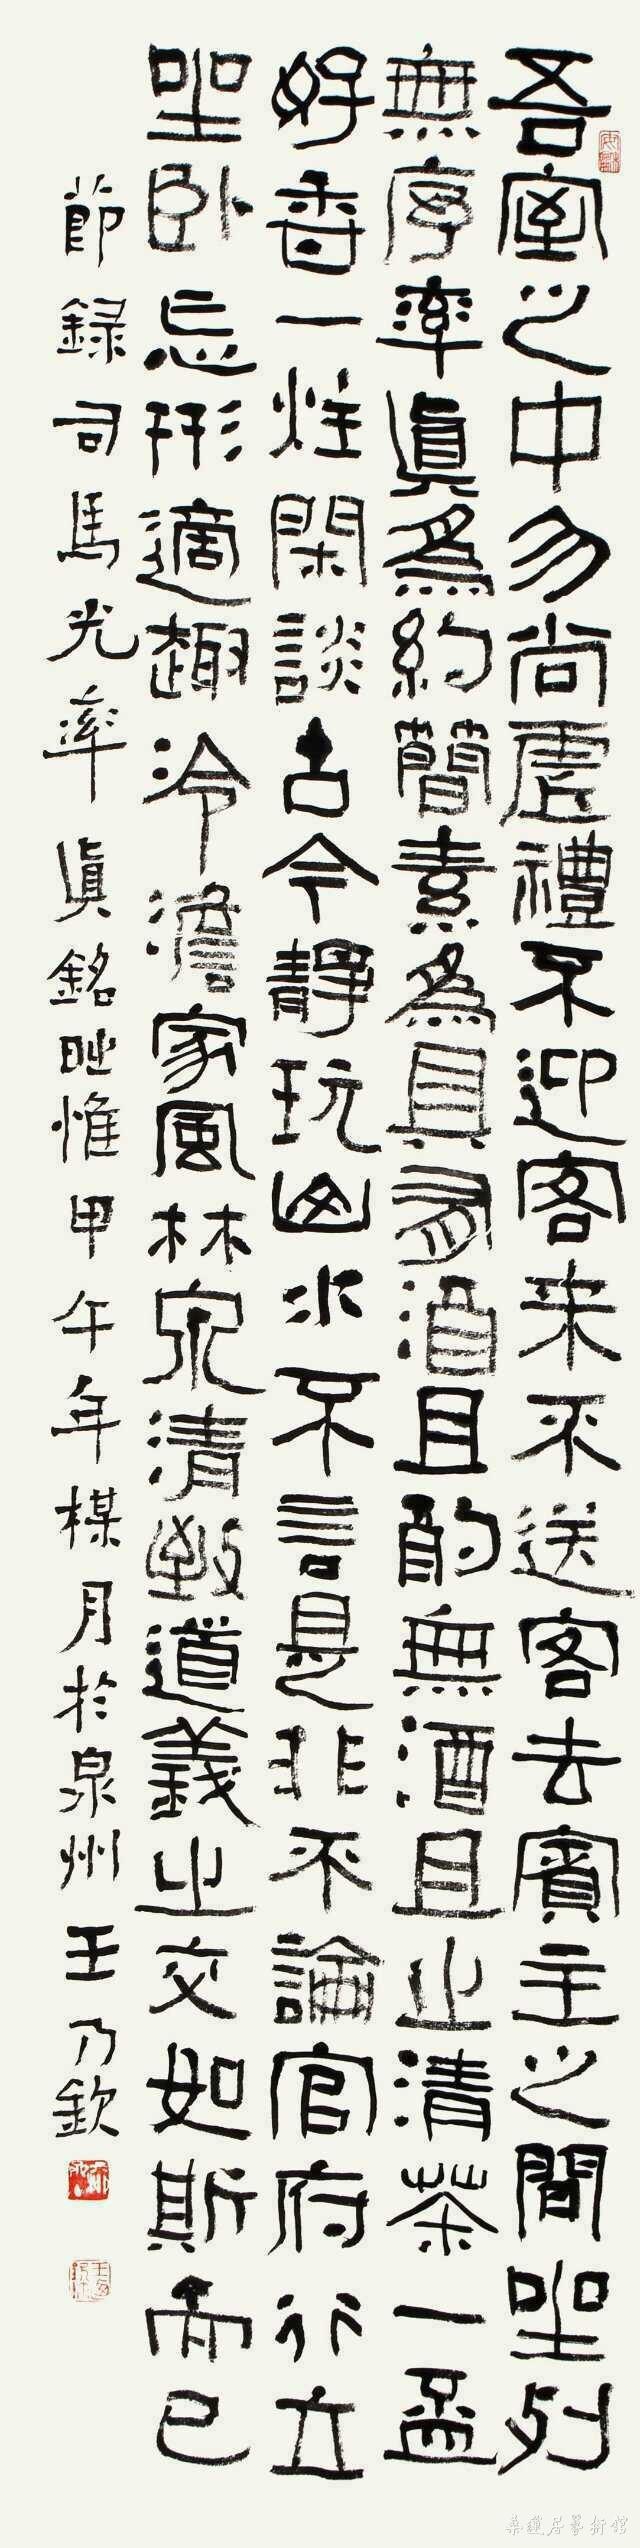 吾室之中勿尚虛禮不迎客來不送客去賓主之間坐列
無序率眞爲約簡素爲具有酒且酌無酒且止清茶一盂
好香一炷閑談古今靜玩山水不言是非不論官府行立
坐臥忘形適趣冷澹家風林泉清致道義之交如斯而已
節録司馬光率眞銘時惟甲午年楳月於泉州王乃欽
桑蓮居藝術館